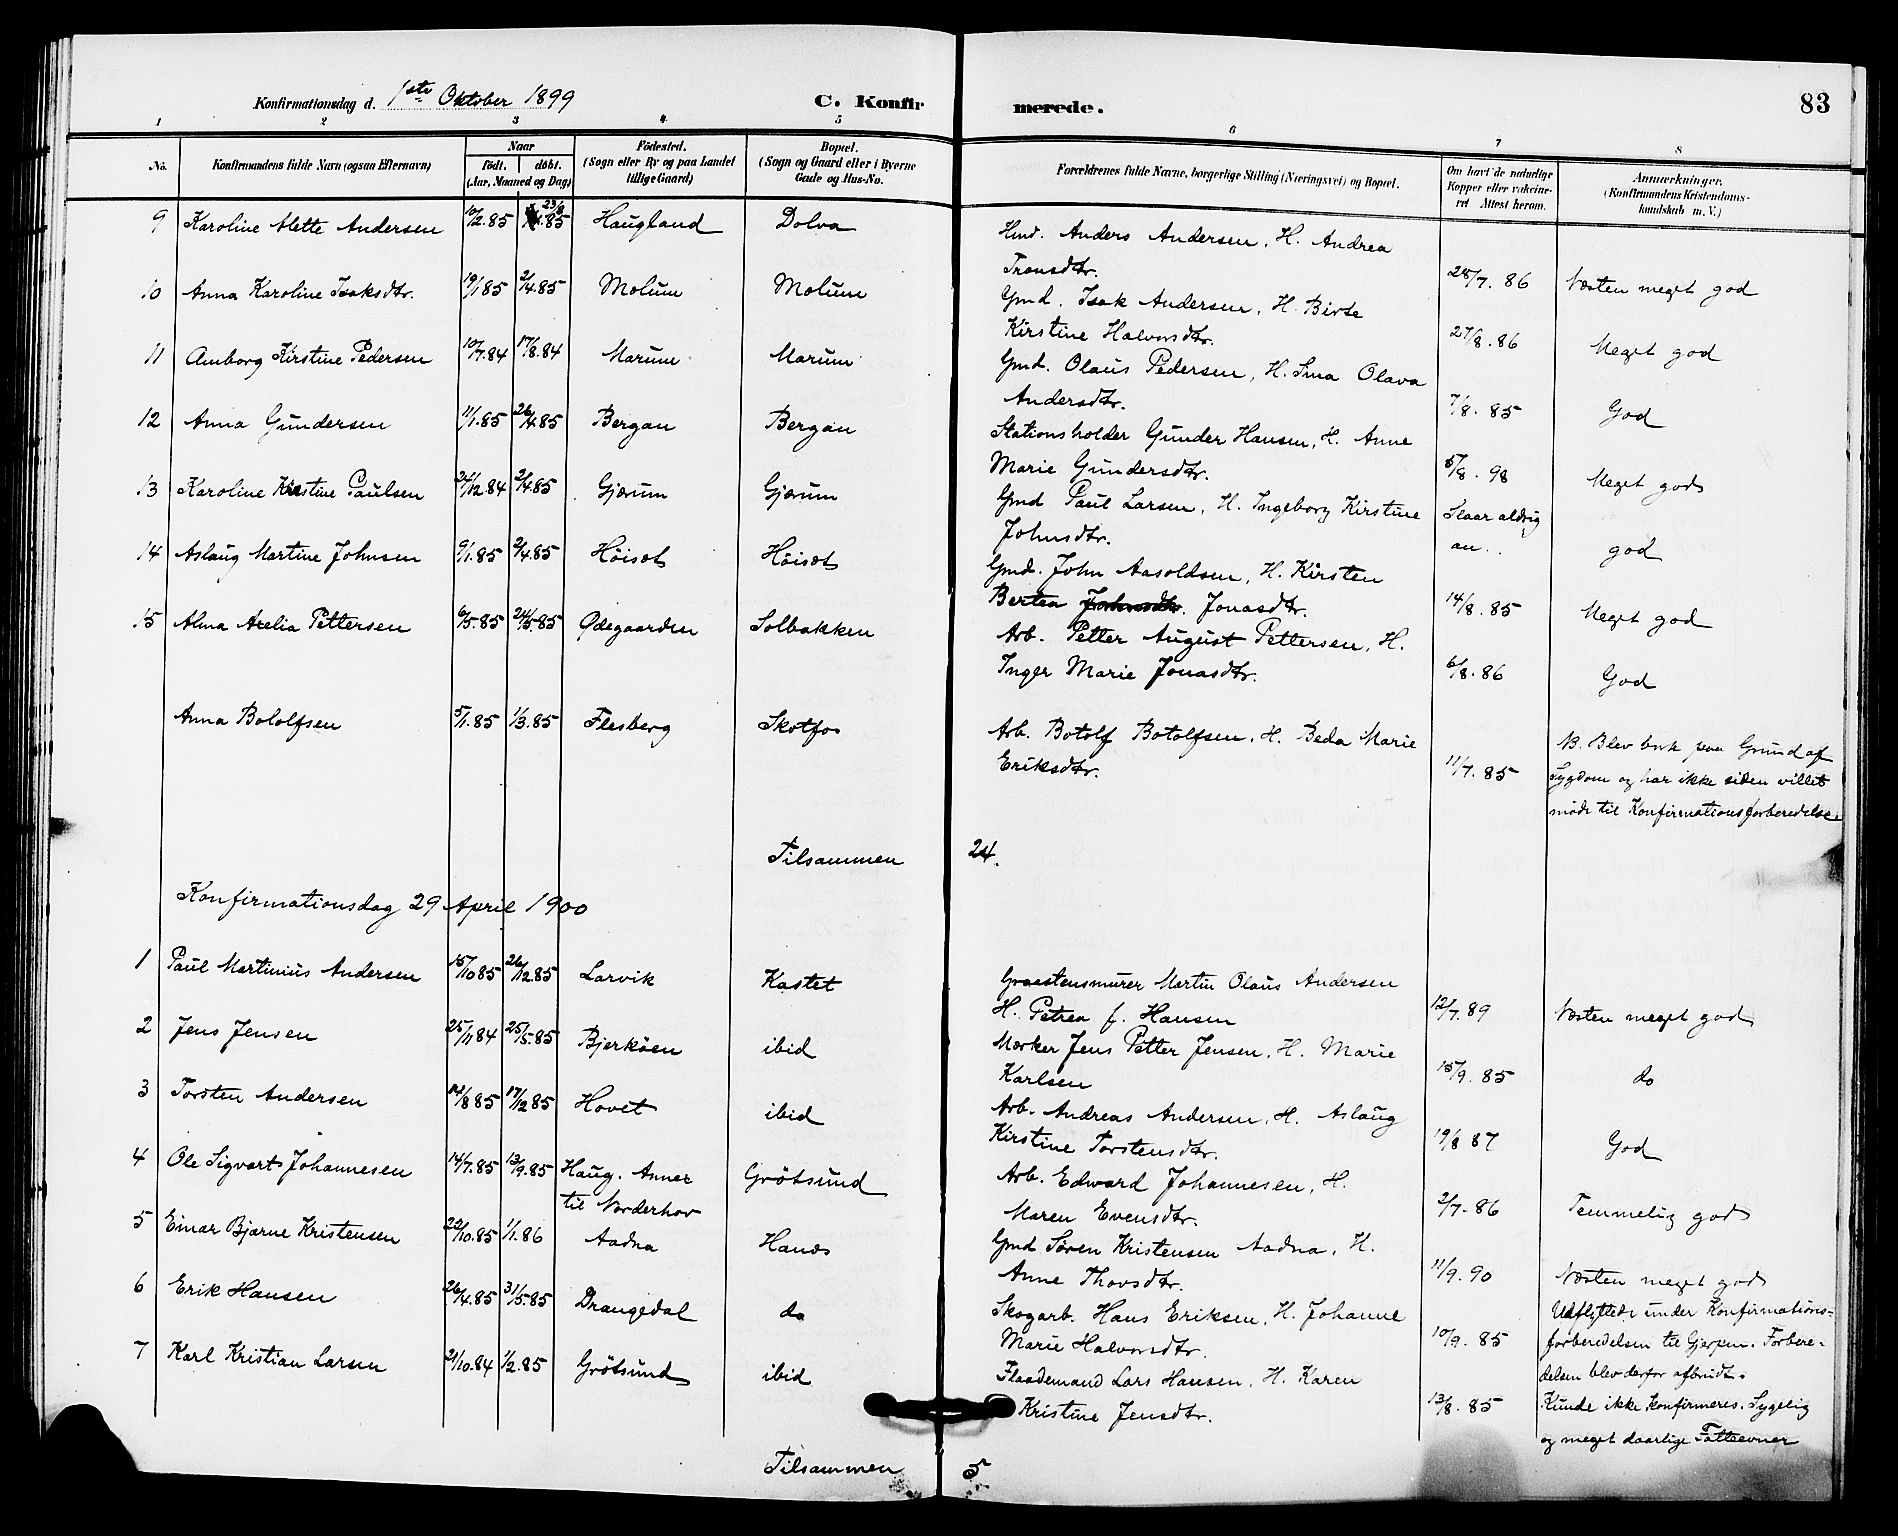 Konfirmationsdag d. 1ste Oktober 1899 C. Konfir merede. 83
1 2 3 4 5 6 7 8
No. Konfirmandens fulde Navn (ogsaa Efternavn) Naar født. døbt. (Aar, Maaned og Dag) Fødested. (Sogn eller By og paa Landet tillige Gaard) Bopæl. (Sogn og Gaard eller i Byerne Gade og Hus-No. Forældrenes fulde Navne, borgerlige Stilling (Næringsvei) og Bopæl. Om havt de naturlige Kopper eller vakcineret Attest herom. Anmærkninger. (Konfirmandens Kristendomskundskab m. V.)
9 Karoline Alette Andersen 10/2.85 23/8.85 Haugland Dolva Hmd. Anders Andersen, H. Andrea
Tronsdtr. 28/7.86 Næsten meget god
10 Anna Karoline Isaksdtr. 19/1 85 2/4.85 Molum Molum Gmd. Isak Andersen, H. Birte
Kirstine Halvorsdtr. 27/8.86 Meget god
11 Amborg Kirstine Pedersen 10/7.84 17/8.84 Marum Marum Gmd. Olaus Pedersen, H. Sina Olava
Andersdtr. 7/8.85 God
12 Anna Gundersen 11/1.85 26/4.85 Bergan Bergan Stationsholder Gunder Hansen, H. Anne
Marie Gundersdtr. 5/8.98 Meget god
13 Karoline Kirstine Paulsen 24/12.84 2/4.85 Gjærum Gjærum Gmd Paul Larsen, H. Ingeborg Kirstine Slaar aldrig
Johnsdtr. an. god
14 Aslaug Martine Johnsen 9/1.85 2/4.85 Høisæt Høisæt Gmd. John Aasoldsen, H. Kirsten
Bertea Johnsdtr. Jonasdtr. 14/8.85 Meget god
15 Alma Azelia Pettersen 6/5.85 24/5.85 Ødegaarden Solbakken Arb. Petter August Pettersen, H.
Inger Marie Jonasdtr. 6/8.86 God
Anna Bololfsen 5/1.85 1/3.85 Flesberg Skotfos Arb. Botolf Botolfsen, H. Beda Marie NB. Blev bort paa Grund af
Eriksdtr. 11/7.85 Sygdom og har ikke siden villet
møde til Konfirmationsforberedelse
Tilsammen 24.
Konfirmationsdag 29 April 1900
1 Paul Martinius Andersen 15/10 85 26/12.85 Larvik Kastet Graastensmurer Martin Olaus Andersen
H. Petrea f. Hansen 12/7.89 Næsten meget god
2 Jens Jensen 25/11 84 25/5.85 Bjerkøen ibid Mærker Jens Petter Jensen, H. Marie
Karlsen 15/9.85 do
3 Torsten Andersen 14/8 85 17/12 85 Hovet ibid Arb. Andreas Andersen, H. Aslaug
Kirstine Torstensdtr. 19/8 87 God
4 Ole Sigvart Johannesen 14/7.85 13/9.85 Haug. Annex Grötsund Arb. Edward Johannesen, H.
til Norderhov Maren Evensdtr. 2/7.86 Temmelig god
5 Einar Bjarne Kristensen 22/10.85 1/1.86 Aadna Hanes Gmd Søren Kristensen Aadna, H.
Anne Thovsdtr. 11/9.90 Næsten meget god
6 Erik Hansen 26/4.85 31/5.85 Drangedal do Skogarb. Hans Eriksen, H. Johanne Udflyttede under Konfirmations-
Marie Halvorsdtr. 10/9.85 forberedelsen til Gjerpen. Forbere-
delsen blev derfor afbrudt.
7 Karl Kristian Larsen 21/10.84 1/2.85 Grötsund ibid Flaademand Lars Hansen, H. Karen
Kristine Jensdtr. 13/8.85 Kunde ikke konfirmeres. Sygelig
og meget daarlige Fatteevner
Tilsammen 5